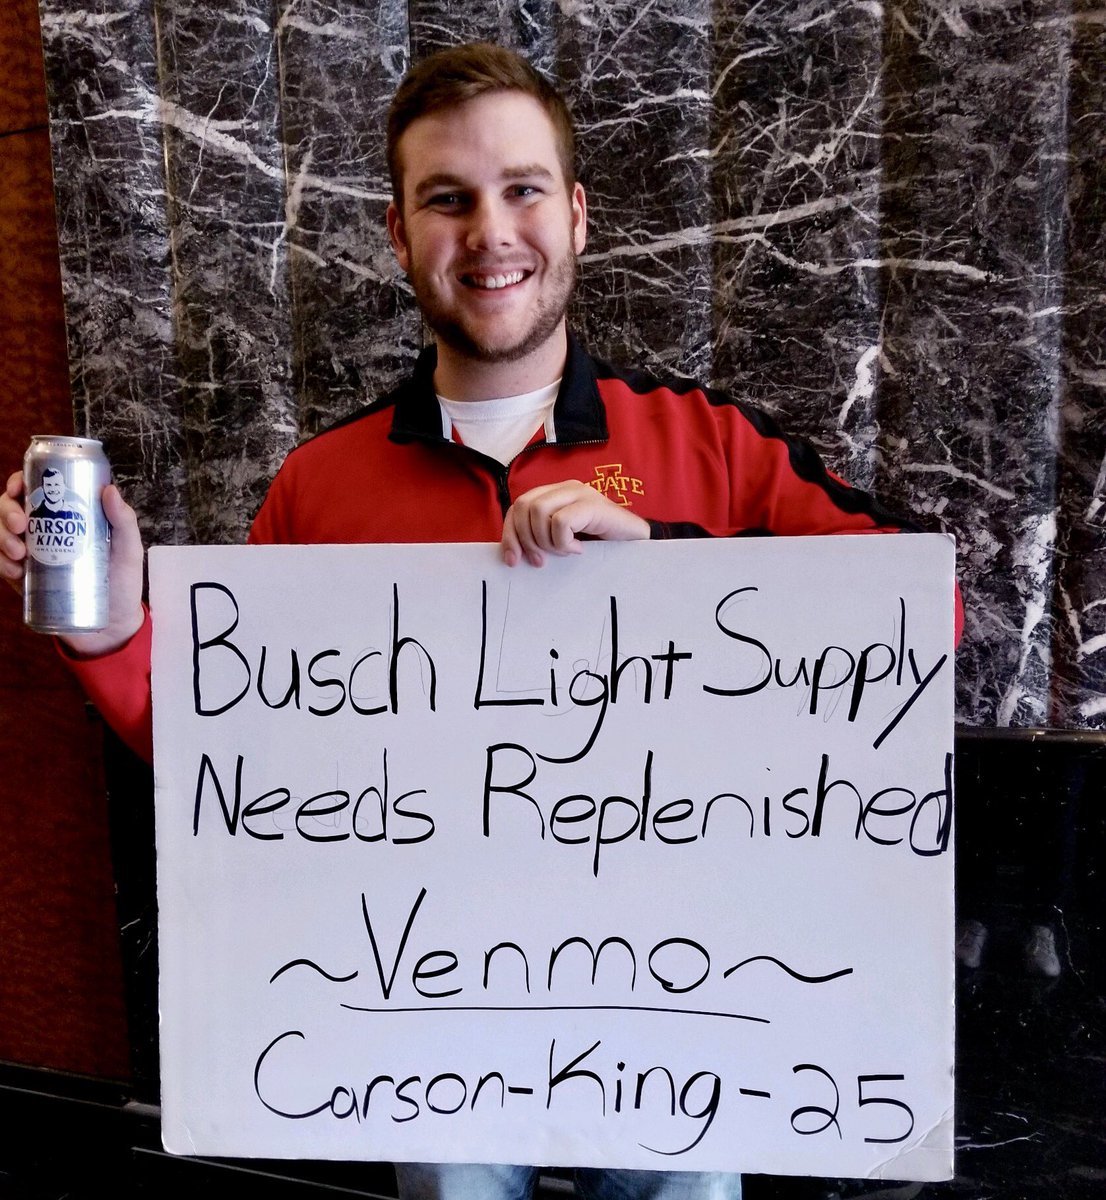 CARSON
KING
IOWA LEGEND
I
STATE
Busch Light Supply
Needs Replenished
~Venmo~
Carson-King-25